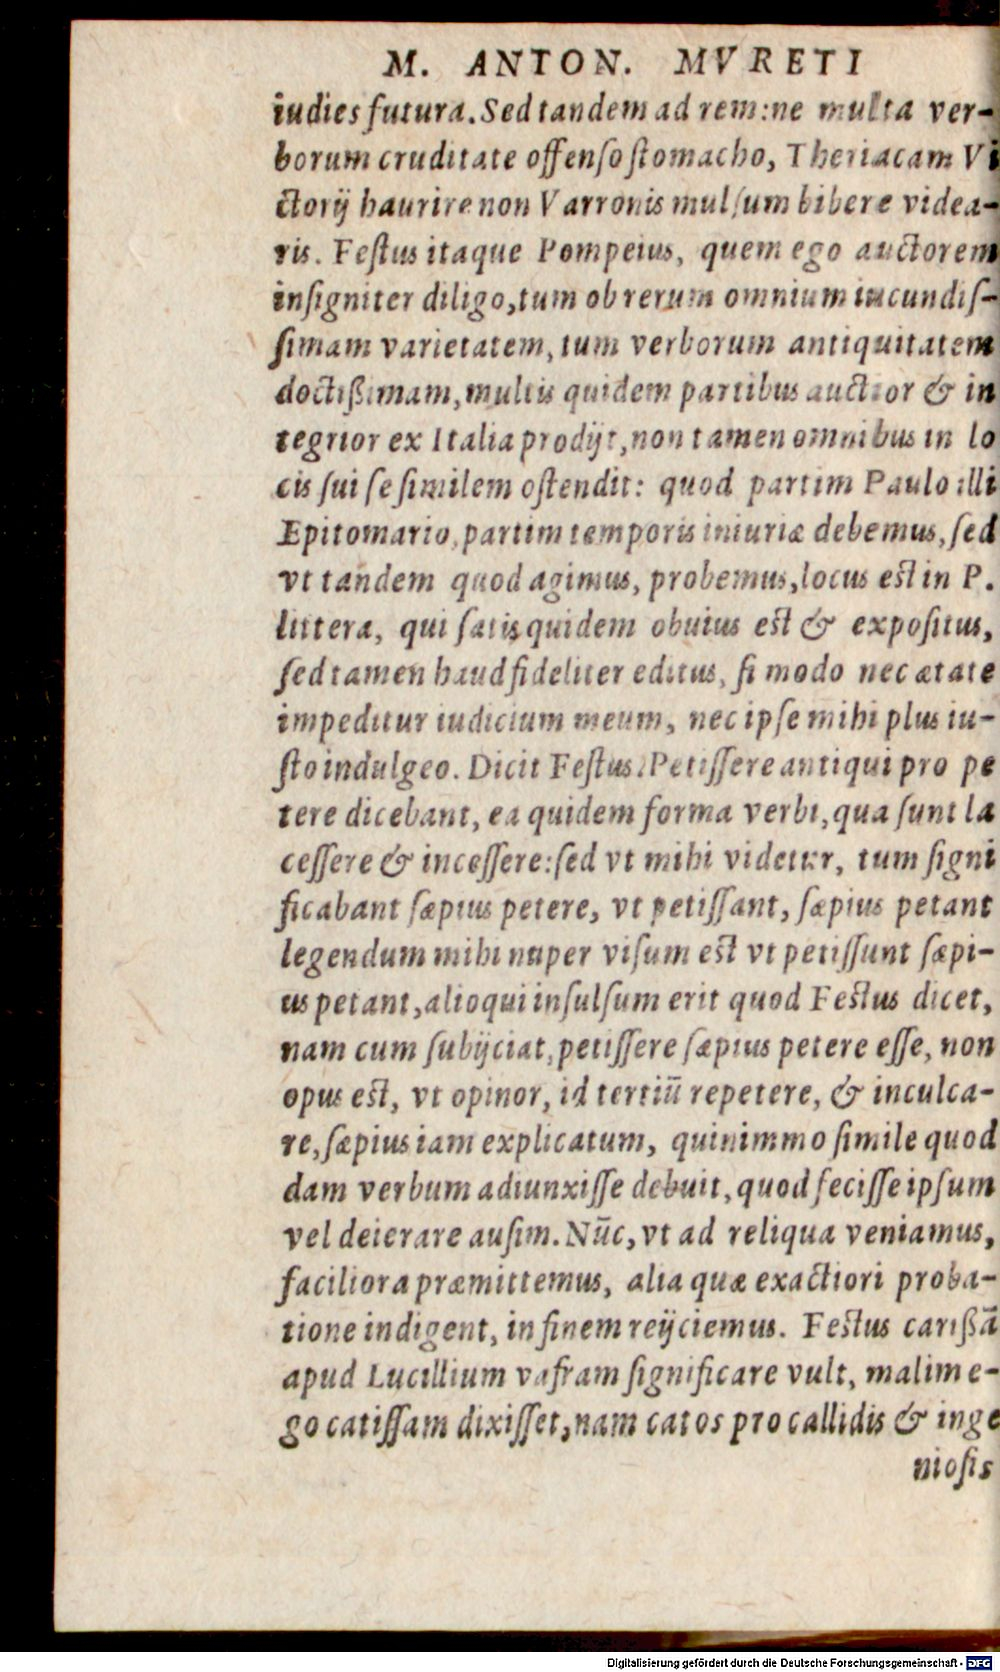 M. ANTON. MVRETI
iudies futura. Sed tandem ad rem: ne multa ver-
borum cruditate offenso stomacho, Theriacam Vi
ctorij haurire non Varronis mulsum bibere videa-
ris. Festus itaque Pompeius, quem ego auctorem
insigniter diligo, tum ob rerum omnium iucundis-
simam varietatem, tum verborum antiquitatem
doctißimam, multis quidem partibus auctior & in
tegrior ex Italia prodijt, non tamen omnibus in lo
cis sui se similem ostendit: quod partim Paulo illi
Epitomario, partim temporis iniuriæ debemus, sed
vt tandem quod agimus, probemus, locus est in P.
littera, qui satis quidem obuius est & expositus,
sed tamen haud fideliter editus, si modo nec ætate
impeditur iudicium meum, nec ipse mihi plus iu-
sto indulgeo. Dicit Festus: Petissere antiqui pro pe
tere dicebant, ea quidem forma verbi, qua sunt la
cessere & incessere: sed vt mihi videtur, tum signi
ficabant sæpius petere, vt petissant, sæpius petant
legendum mihi nuper visum est vt petissunt sæpi-
us petant, alioqui insulsum erit quod Festus dicet,
nam cum subijciat, petissere sæpius petere esse, non
opus est, vt opinor, id tertiū repetere, & inculca-
re, sæpius iam explicatum, quinimmo simile quod
dam verbum adiunxisse debuit, quod fecisse ipsum
vel deierare ausim. Nūc, vt ad reliqua veniamus,
faciliora præmittemus, alia quæ exactiori proba-
tione indigent, in finem reijciemus. Festus carißā
apud Lucillium vafram significare vult, malim e-
go catissam dixisset, nam catos pro callidis & inge
niosis
Digitalisierung gefördert durch die Deutsche Forschungsgemeinschaft - DFG